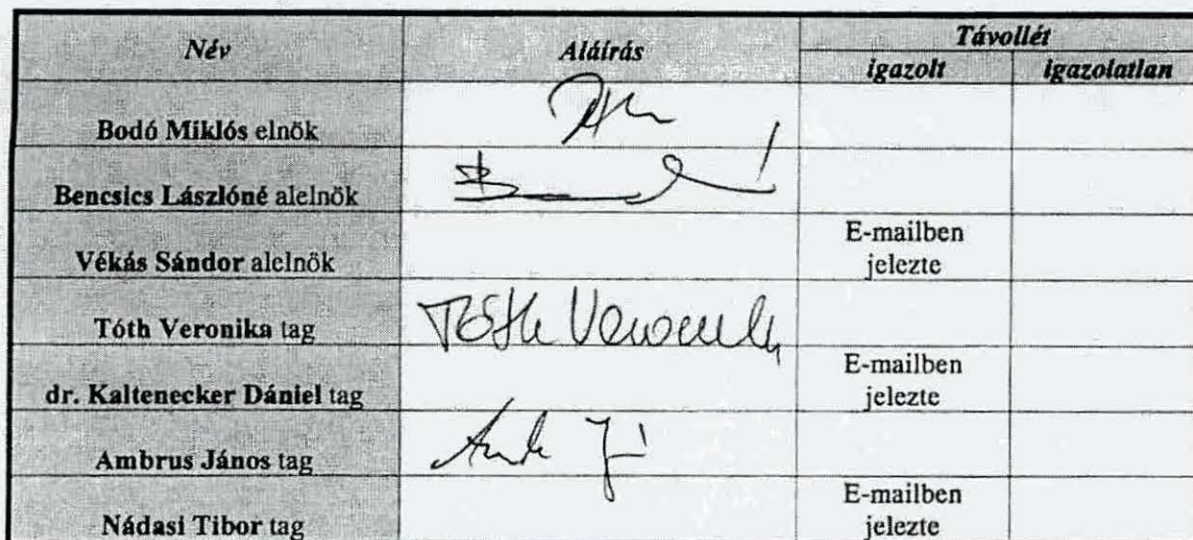 Név Aláírás Távollét
igazolt igazolatlan
Bodó Miklós elnök
Bencsics Lászlóné alelnök
Vékás Sándor alelnök E-mailben
jelezte
Tóth Veronika tag Tóth Veronika
dr. Kaltenecker Dániel tag E-mailben
jelezte
Ambrus János tag
Nádasi Tibor tag E-mailben
jelezte